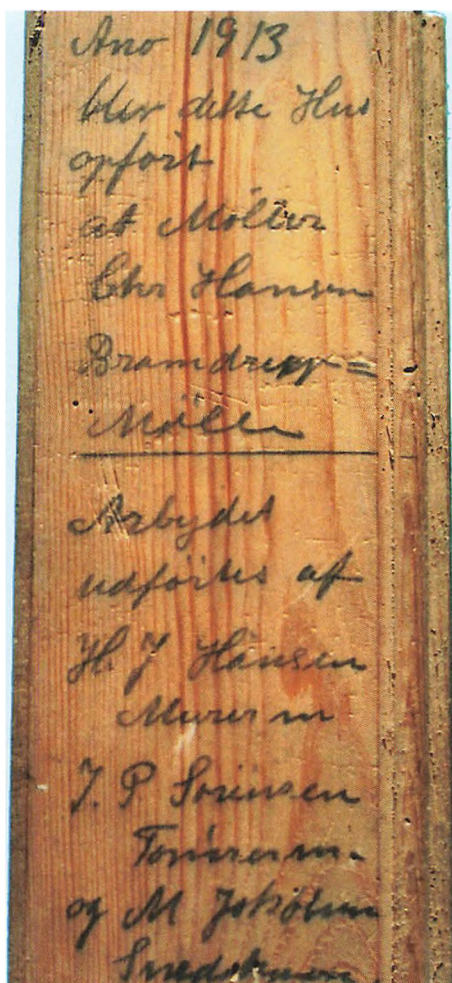 Ano 1913
blev dette Hus
opført
af Møller
Chr Hansen
Bramdrup=
Mølle
Arbejdet
udførtes af
H. J Hansen
Murerm
J. P Sørensen
Tømrerm.
og M Jakobsen